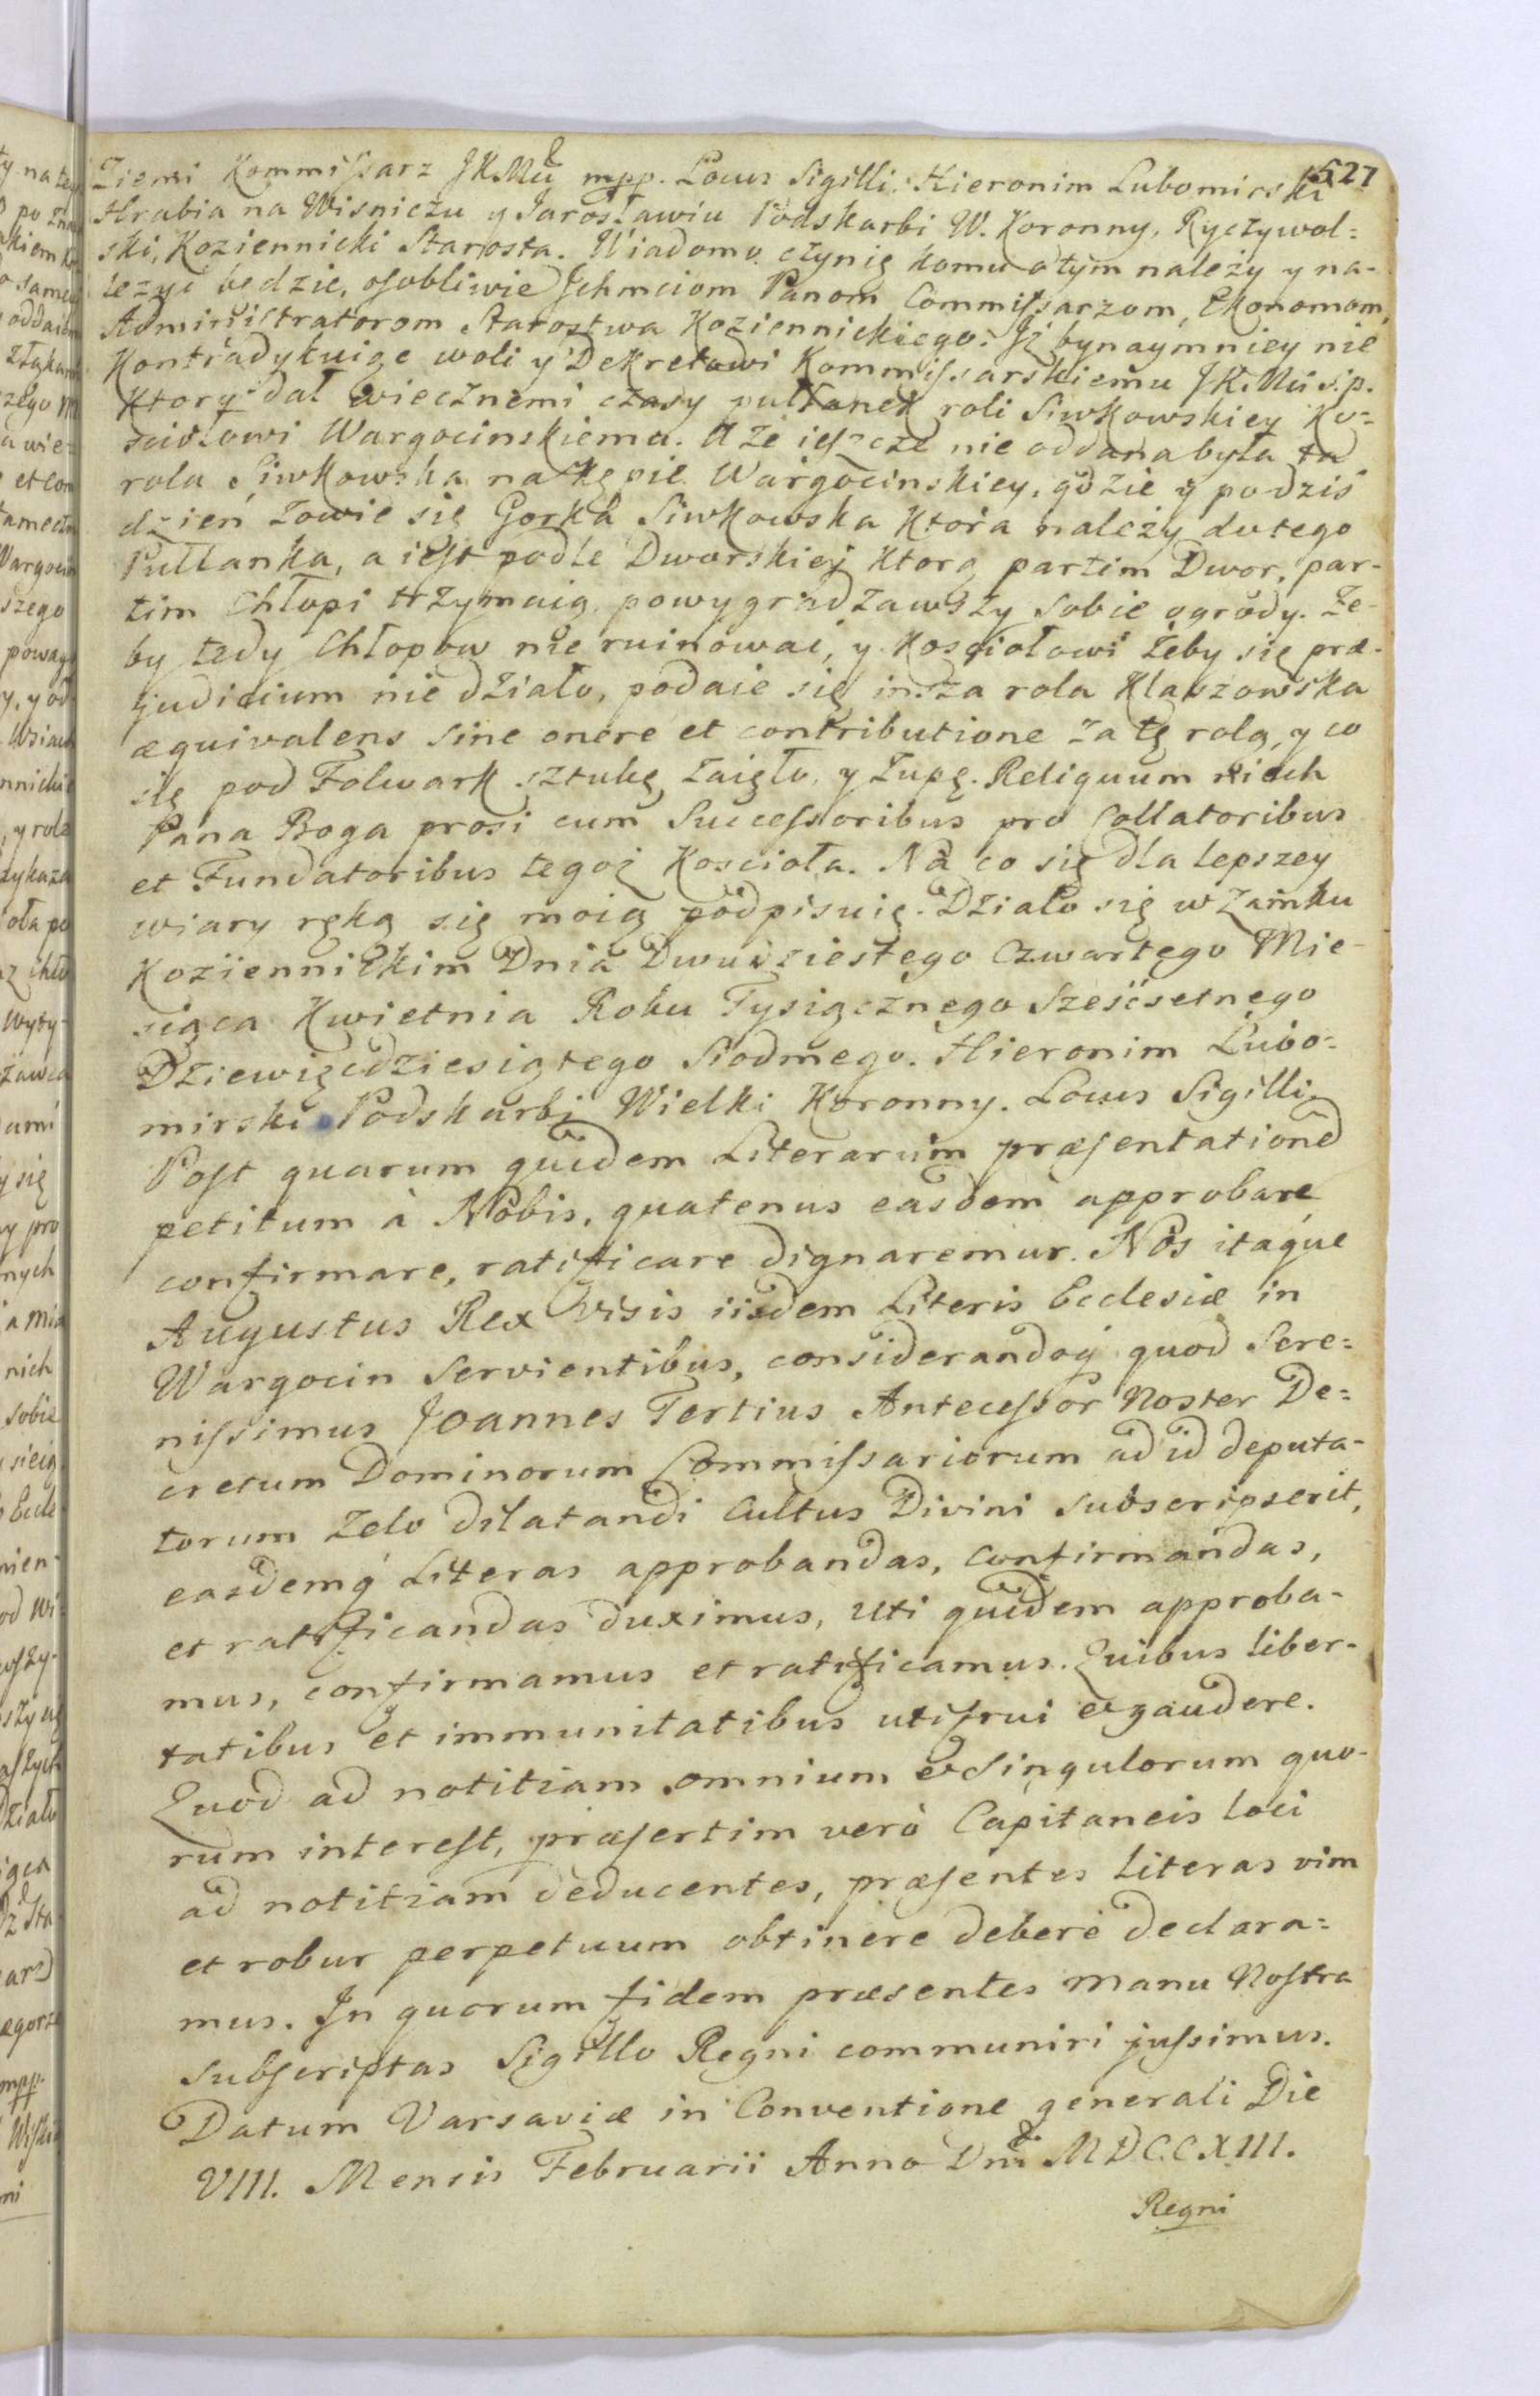 527
Ziemi Kommissarz JKMci mpp. Locus Sigilli. Hieronim Lubomirski
Hrabia na Wisniczu y Jarosławiu Podskarbi W. Koronny, Ryczywol=
ski, Koziennicki Starosta. Wiadomo czynię komu o tym należy y na-
lezyć bedzie, osobliwie Jchmciom Panom Commissarzom, Ekonomom,
Administratorom Starostwa Koziennickiego: Iż bynaymniey nie
Kontradykuiąc woli y Dekretowi Kommissarskiemu JKMci s. p.
Ktory dał wiecznemi czasy pułłanek roli Siwkowskiey Ko=
sciołowi Wargocinskiemu. A że ieszcze nie oddana była ta
rola Siwkowska na Kępie Wargocinskiey, gdzie y podziś
dzień zowie się Gorka Siwkowska Ktora należy do tego
Pułłanka, a iest podle Dworskiey Ktorą partim Dwor, par-
tim Chłopi trzymaią powygradzawszy sobie ogrody. Ze-
by tedy Chłopow nie ruinować, y Kosciołowi żeby się præ-
judicium nie działo, podaie się insza rola Klaszowska
æquivalens sine onere et contributione za tę rolą, y co
się pod Folwark sztukę zaięło, y Zupę. Reliquum niech
Pana Boga prosi cum Successoribus pro Collatoribus
et Fundatoribus tegoż Kościoła. Na co się dla lepszey
wiary ręką się moią podpisuię. Działo się w Zamku
Koziennickim Dnia Dwudziestego Czwartego Mie-
siąca Kwietnia Roku Tysiącznego Sześćsetnego
Dziewięćdziesiątego Siodmego. Hieronim Lubo=
mirski Podskarbi Wielki Koronny. Locus Sigilli.
Post quarum quidem Literarum præsentationē
petitum à Nobis, quatenus easdem approbare
confirmare, ratificare dignaremur. Nos itaque
Augustus Rex visis iisdem Literis Ecclesiæ in
Wargocin servientibus, considerandoq́ quod Sere=
nissimus Joannes Tertius Antecessor Noster De=
cretum Dominorum Commissariorum ad id deputa-
torum Zelo dilatandi Cultus Divini subscripserit,
easdemq́ Literas approbandas, confirmandas,
et ratificandas duximus, uti quidem approba-
mus, confirmamus et ratificamus. Quibus liber-
tatibus et immunitatibus utifrui & gaudere.
Quod ad notitiam omnium & singulorum quo-
rum interest, præsertim verò Capitaneis loci
ad notitiam deducentes, præsentes Literas vim
et robur perpetuum obtinere debere declara=
mus. In quorum fidem præsentes manu Nostra
subscriptas Sigillo Regni communiri jussimus.
Datum Varsaviæ in Conventione generali Die
VIII. Mensis Februarii Anno Dni MDCCXIII.
Regni